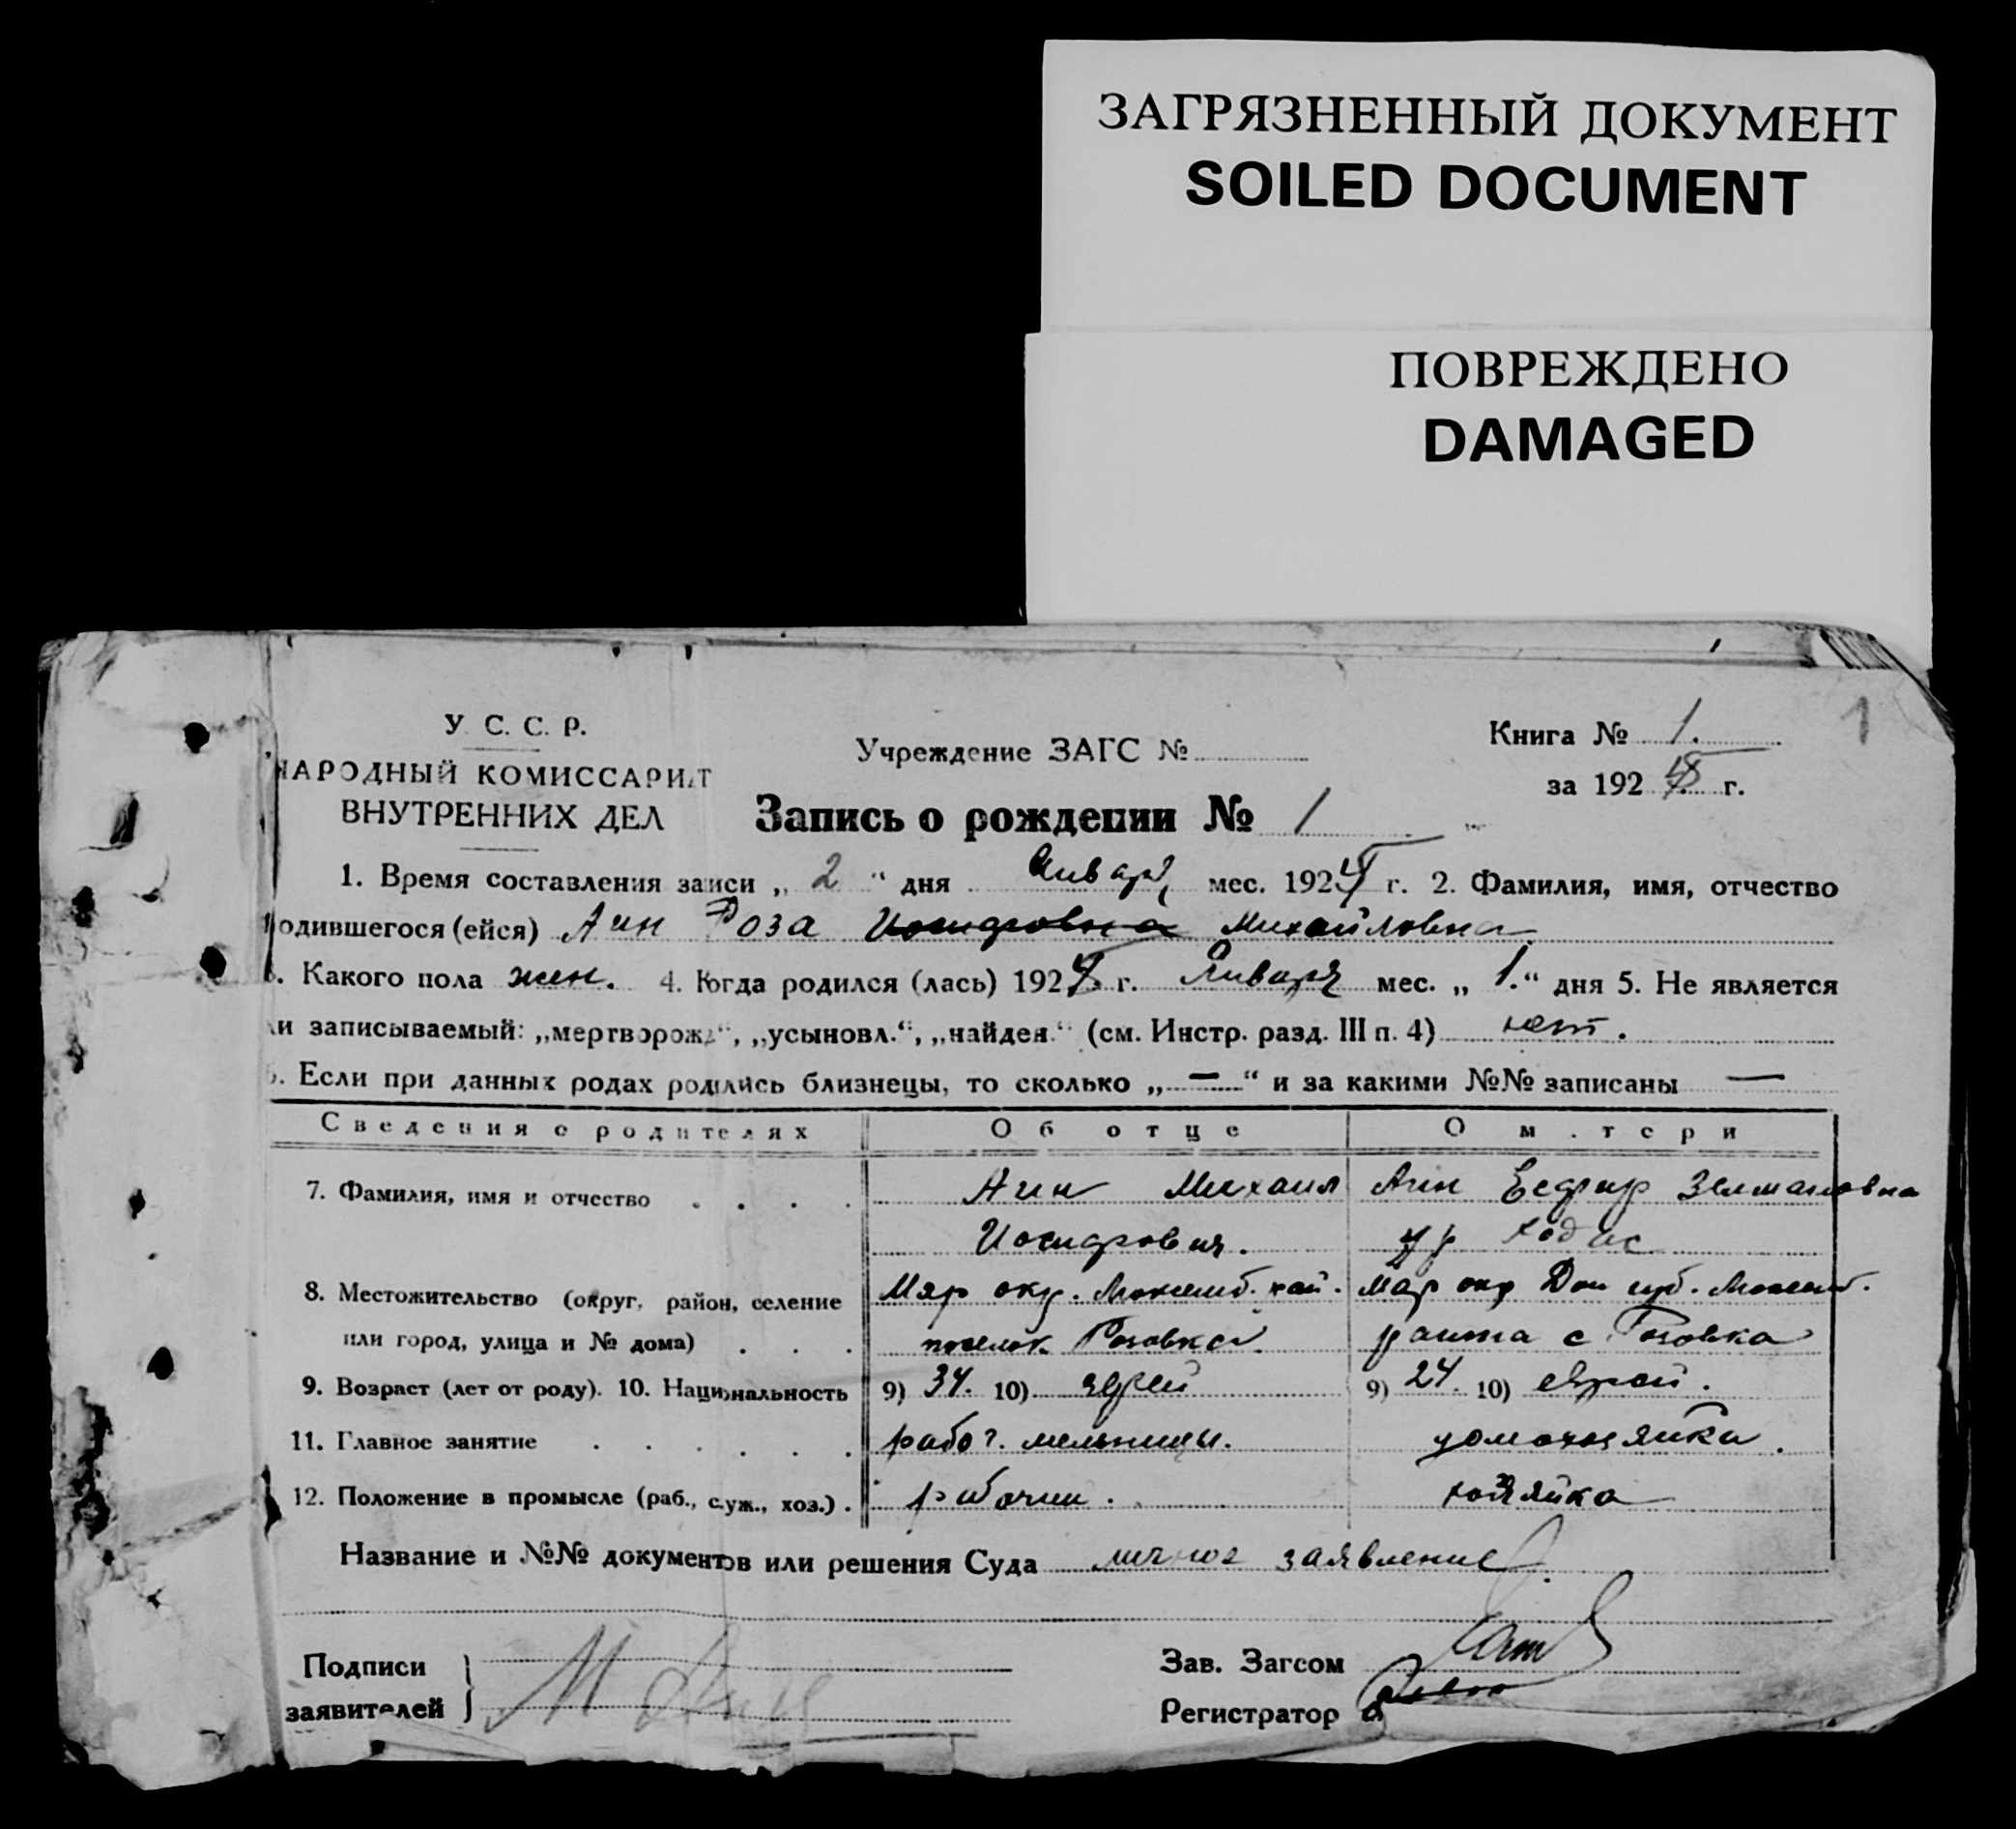 ЗАГРЯЗНЕННЫЙ ДОКУМЕНТ
SOILED DOCUMENT
ПОВРЕЖДЕНО
DAMAGED
1
У. С. С. Р.
НАРОДНЫЙ КОМИССАРИАТ
ВНУТРЕННИХ ДЕЛ
Учреждение ЗАГС №
Книга № 1.
за 192 г.
Запись о рождении № 1
1. Время составления записи „ 2 “ дня Января мес. 192 г. 2. Фамилия, имя, отчество
родившегося (ейся) Аин Роза Иосифовна Михайловна
3. Какого пола жен. 4. Когда родился (лась) 192 г. Января мес. „ 1. “ дня 5. Не является
ли записываемый: „мертворожд“, „усыновл.“, „найден.“ (см. Инстр. разд. III п. 4) нет.
6. Если при данных родах родились близнецы, то сколько „ — “ и за какими №№ записаны —
Сведения о родителях Об отце О матери
7. Фамилия, имя и отчество . . . . Аин Михаил Аин Есфир Зелмановна
Иосифович. ур Ходас
8. Местожительство (округ, район, селение Мар окр. Люксемб. рай. Мар окр Дон губ. Люксемб.
или город, улица и № дома) . . . поселок Розовка. района с. Розовка
9. Возраст (лет от роду). 10. Национальность 9) 34. 10) еврей 9) 24. 10) еврей.
11. Главное занятие . . . . . . рабоч. мельницы. домохозяйка.
12. Положение в промысле (раб., служ., хоз.) . рабочий. хозяйка
Название и №№ документов или решения Суда личное заявление.
Подписи
заявителей
М Аин
Зав. Загсом
Регистратор